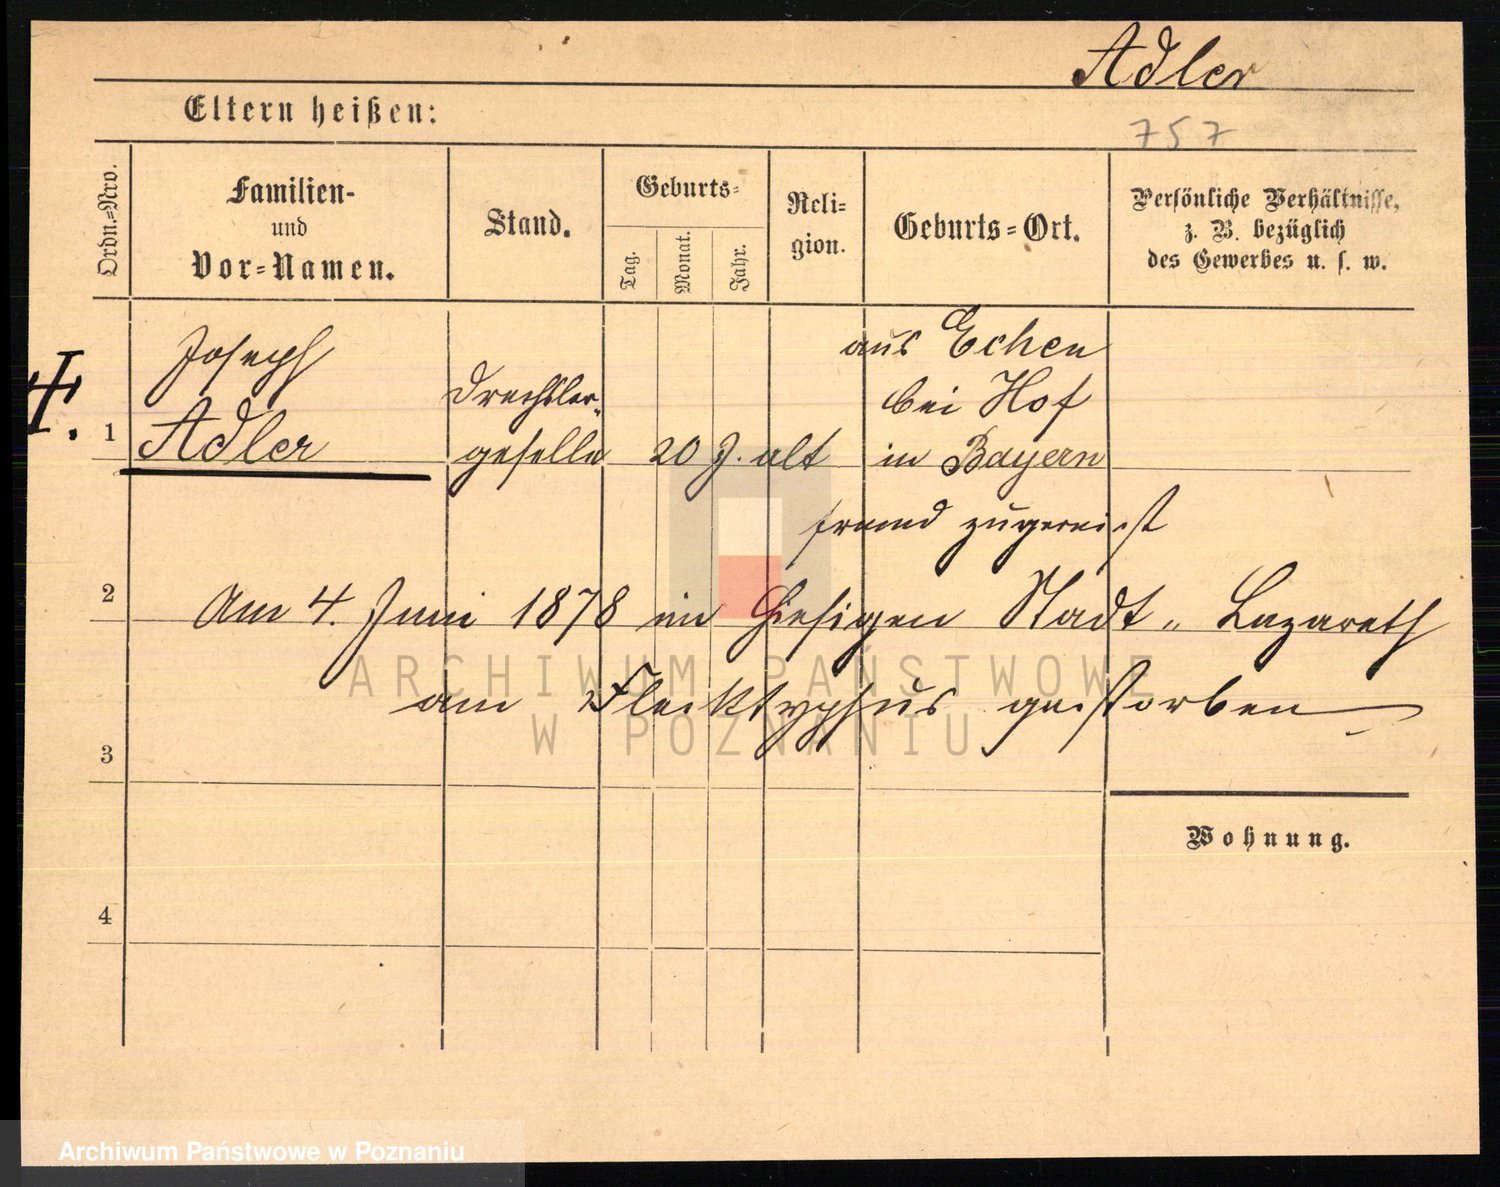 Adler
Eltern heißen:
757
Ordn.=Nro.
Familien-
und
Vor=Namen.
Stand.
Geburts=
Tag.
Monat.
Jahr.
Reli=
gion.
Geburts=Ort.
Persönliche Verhältnisse,
z. B. bezüglich
des Gewerbes u. s. w.
1
Joseph
Adler
Drechsler-
geselle
20 J. alt
aus Echen
bei Hof
in Bayern
fremd zugereist
2
Am 4. Juni 1878 im hiesigen Stadt-Lazareth
am Flecktyphus gestorben
3
Wohnung.
4
ARCHIWUM PAŃSTWOWE
W POZNANIU
Archiwum Państwowe w Poznaniu